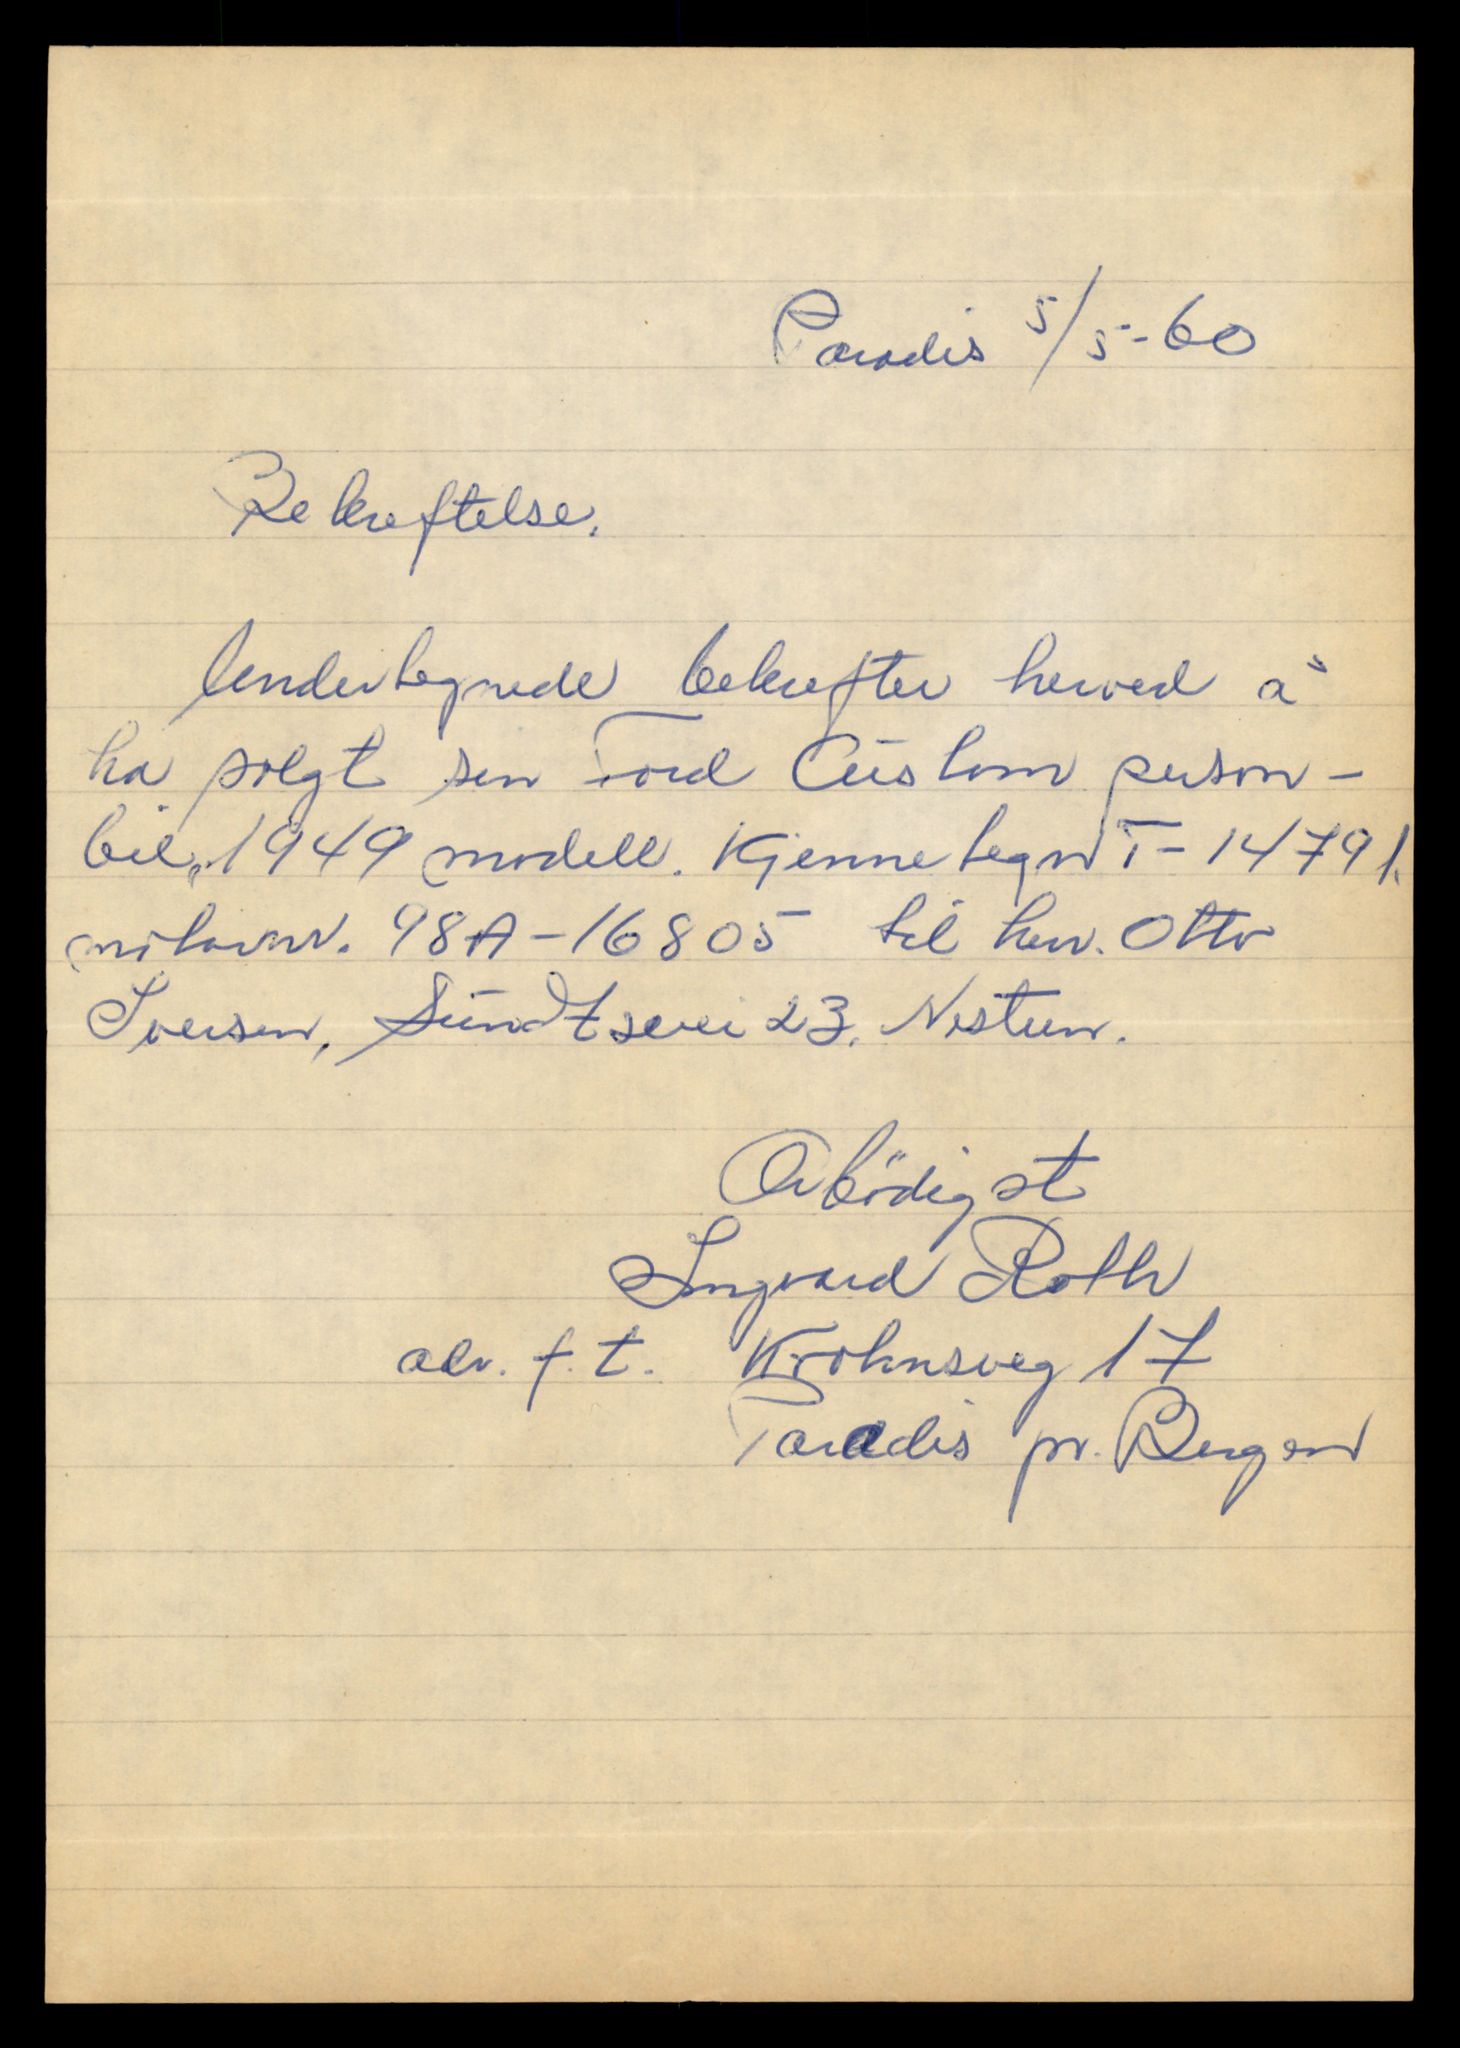 Paradis 5/5-60
Bekreftelse.
Undertegnede bekrefter herved å
ha solgt sin Ford Custom person-
bil, 1949 modell. Kjennetegn T-14791.
motornr. 98A-16805 til herr. Otto
Iversen, Sundtsvei 23. Nestun.
Ærbödigst
Ingvard Roth
adr. f. t. Krohnsveg 17
Paradis pr. Bergen